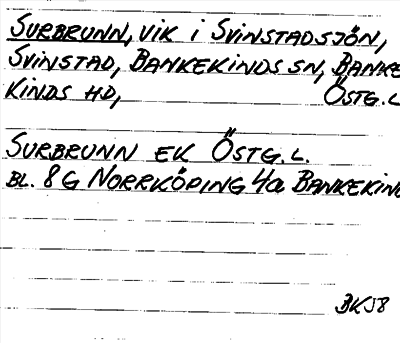 SURBRUNN, VIK I SVINSTADSJÖN,
SVINSTAD, BANKEKINDS SN, BANKE
KINDS HD, ÖSTG.L
SURBRUNN EK ÖSTG.L.
BL. 8G NORRKÖPING 4a BANKEKIND
BKJ8